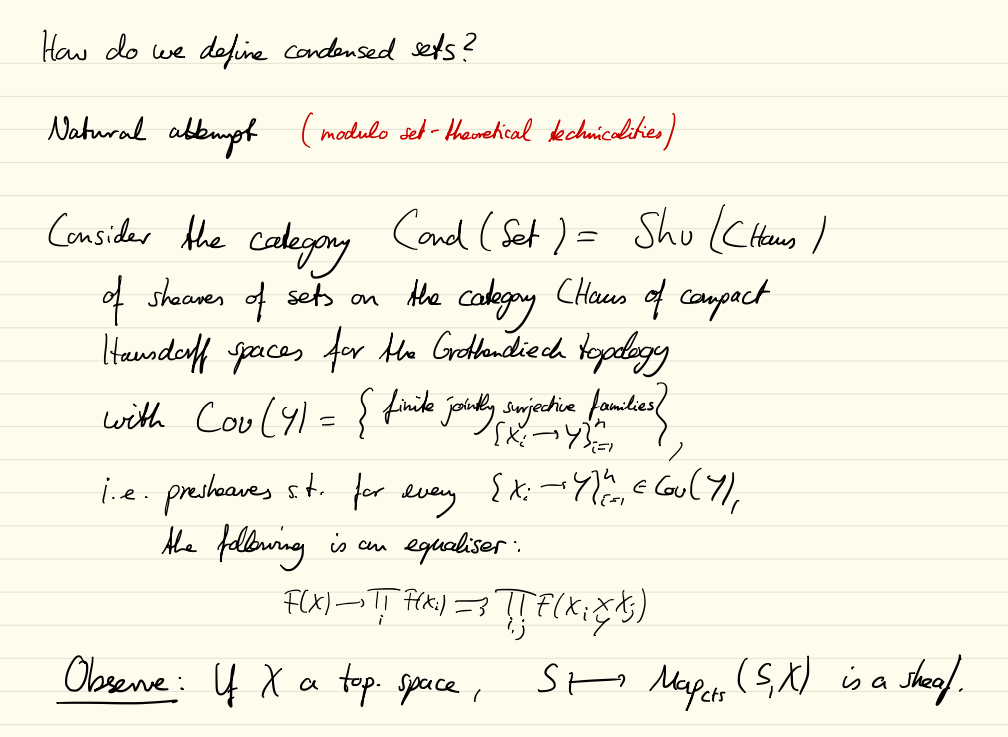 How do we define condensed sets?
Natural attempt (modulo set-theoretical technicalities)
Consider the category Cond(Set) = Shv(CHaus)
of sheaves of sets on the category CHaus of compact
Hausdorff spaces for the Grothendieck topology
with Cov(Y) = { finite jointly surjective families {X_i → Y}_{i=1}^n },
i.e. presheaves s.t. for every {X_i → Y}_{i=1}^n ∈ Cov(Y),
the following is an equaliser:
F(X) → ∏_i F(X_i) ⇉ ∏_{i,j} F(X_i ×_Y X_j)
Observe: If X a top. space, S ↦ Map_cts(S,X) is a sheaf.